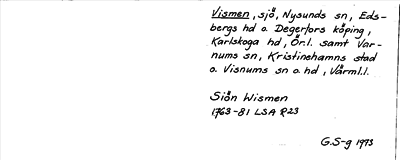 Vismen, sjö, Nysunds sn, Eds-
bergs hd o. Degerfors köping,
Karlskoga hd, Ör.l. samt Var-
nums sn, Kristinehamns stad
o. Visnums sn o. hd, Värml.l.
Siön Wismen
1763-81 LSA P23
G.S-g 1973